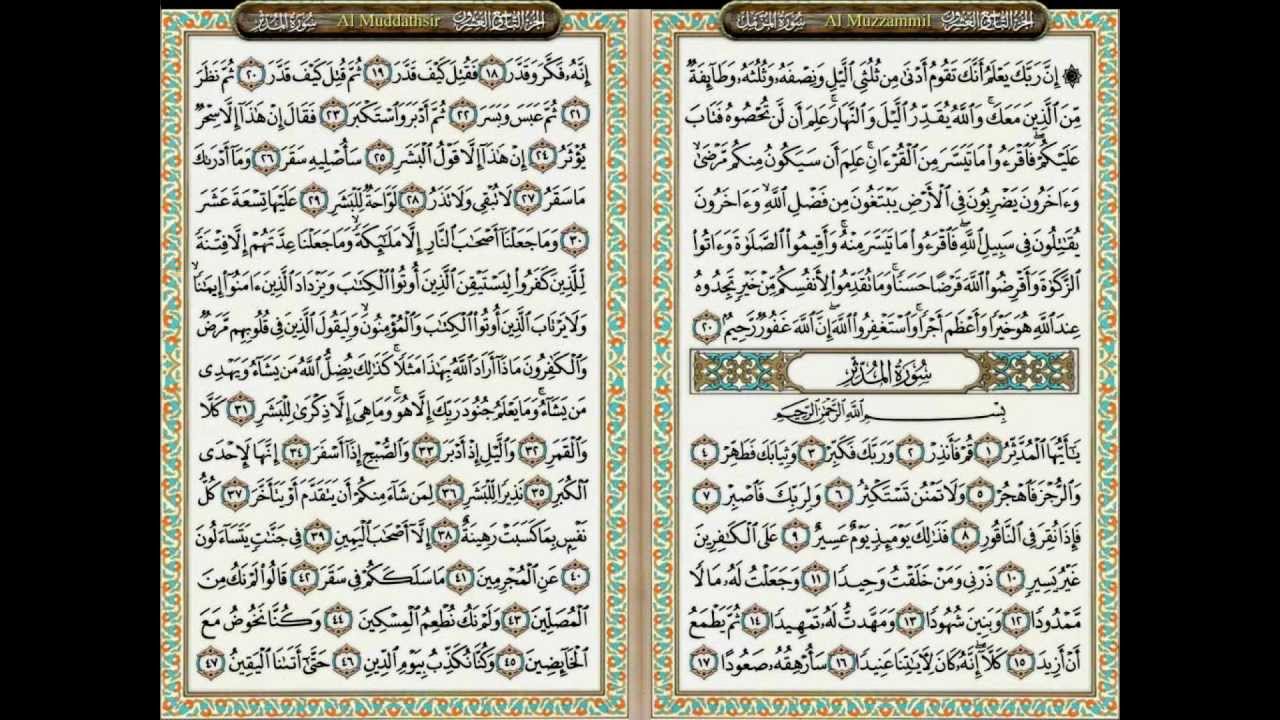 الجزء التاسع والعشرون Al Muzzammil سورة المزمل
۞ إِنَّ رَبَّكَ يَعْلَمُ أَنَّكَ تَقُومُ أَدْنَىٰ مِن ثُلُثَىِ ٱلَّيْلِ وَنِصْفَهُۥ وَثُلُثَهُۥ وَطَآئِفَةٌ
مِّنَ ٱلَّذِينَ مَعَكَ ۚ وَٱللَّهُ يُقَدِّرُ ٱلَّيْلَ وَٱلنَّهَارَ ۚ عَلِمَ أَن لَّن تُحْصُوهُ فَتَابَ
عَلَيْكُمْ ۖ فَٱقْرَءُوا۟ مَا تَيَسَّرَ مِنَ ٱلْقُرْءَانِ ۚ عَلِمَ أَن سَيَكُونُ مِنكُم مَّرْضَىٰ ۙ
وَءَاخَرُونَ يَضْرِبُونَ فِى ٱلْأَرْضِ يَبْتَغُونَ مِن فَضْلِ ٱللَّهِ ۙ وَءَاخَرُونَ
يُقَـٰتِلُونَ فِى سَبِيلِ ٱللَّهِ ۖ فَٱقْرَءُوا۟ مَا تَيَسَّرَ مِنْهُ ۚ وَأَقِيمُوا۟ ٱلصَّلَوٰةَ وَءَاتُوا۟
ٱلزَّكَوٰةَ وَأَقْرِضُوا۟ ٱللَّهَ قَرْضًا حَسَنًا ۚ وَمَا تُقَدِّمُوا۟ لِأَنفُسِكُم مِّنْ خَيْرٍ تَجِدُوهُ
عِندَ ٱللَّهِ هُوَ خَيْرًا وَأَعْظَمَ أَجْرًا ۚ وَٱسْتَغْفِرُوا۟ ٱللَّهَ ۖ إِنَّ ٱللَّهَ غَفُورٌ رَّحِيمٌۢ ٢٠
سُورَةُ المُدَّثِّر
بِسْمِ ٱللَّهِ ٱلرَّحْمَـٰنِ ٱلرَّحِيمِ
يَـٰٓأَيُّهَا ٱلْمُدَّثِّرُ ١ قُمْ فَأَنذِرْ ٢ وَرَبَّكَ فَكَبِّرْ ٣ وَثِيَابَكَ فَطَهِّرْ ٤
وَٱلرُّجْزَ فَٱهْجُرْ ٥ وَلَا تَمْنُن تَسْتَكْثِرُ ٦ وَلِرَبِّكَ فَٱصْبِرْ ٧
فَإِذَا نُقِرَ فِى ٱلنَّاقُورِ ٨ فَذَٰلِكَ يَوْمَئِذٍ يَوْمٌ عَسِيرٌ ٩ عَلَى ٱلْكَـٰفِرِينَ
غَيْرُ يَسِيرٍ ١٠ ذَرْنِى وَمَنْ خَلَقْتُ وَحِيدًا ١١ وَجَعَلْتُ لَهُۥ مَالًا
مَّمْدُودًا ١٢ وَبَنِينَ شُهُودًا ١٣ وَمَهَّدتُّ لَهُۥ تَمْهِيدًا ١٤ ثُمَّ يَطْمَعُ
أَنْ أَزِيدَ ١٥ كَلَّآ ۖ إِنَّهُۥ كَانَ لِـَٔايَـٰتِنَا عَنِيدًا ١٦ سَأُرْهِقُهُۥ صَعُودًا ١٧
الجزء التاسع والعشرون Al Muddathsir سورة المدثر
إِنَّهُۥ فَكَّرَ وَقَدَّرَ ١٨ فَقُتِلَ كَيْفَ قَدَّرَ ١٩ ثُمَّ قُتِلَ كَيْفَ قَدَّرَ ٢٠ ثُمَّ نَظَرَ
٢١ ثُمَّ عَبَسَ وَبَسَرَ ٢٢ ثُمَّ أَدْبَرَ وَٱسْتَكْبَرَ ٢٣ فَقَالَ إِنْ هَـٰذَآ إِلَّا سِحْرٌ
يُؤْثَرُ ٢٤ إِنْ هَـٰذَآ إِلَّا قَوْلُ ٱلْبَشَرِ ٢٥ سَأُصْلِيهِ سَقَرَ ٢٦ وَمَآ أَدْرَىٰكَ
مَا سَقَرُ ٢٧ لَا تُبْقِى وَلَا تَذَرُ ٢٨ لَوَّاحَةٌ لِّلْبَشَرِ ٢٩ عَلَيْهَا تِسْعَةَ عَشَرَ
٣٠ وَمَا جَعَلْنَآ أَصْحَـٰبَ ٱلنَّارِ إِلَّا مَلَـٰٓئِكَةً ۙ وَمَا جَعَلْنَا عِدَّتَهُمْ إِلَّا فِتْنَةً
لِّلَّذِينَ كَفَرُوا۟ لِيَسْتَيْقِنَ ٱلَّذِينَ أُوتُوا۟ ٱلْكِتَـٰبَ وَيَزْدَادَ ٱلَّذِينَ ءَامَنُوٓا۟ إِيمَـٰنًا ۙ
وَلَا يَرْتَابَ ٱلَّذِينَ أُوتُوا۟ ٱلْكِتَـٰبَ وَٱلْمُؤْمِنُونَ ۙ وَلِيَقُولَ ٱلَّذِينَ فِى قُلُوبِهِم مَّرَضٌ
وَٱلْكَـٰفِرُونَ مَاذَآ أَرَادَ ٱللَّهُ بِهَـٰذَا مَثَلًا ۚ كَذَٰلِكَ يُضِلُّ ٱللَّهُ مَن يَشَآءُ وَيَهْدِى
مَن يَشَآءُ ۚ وَمَا يَعْلَمُ جُنُودَ رَبِّكَ إِلَّا هُوَ ۚ وَمَا هِىَ إِلَّا ذِكْرَىٰ لِلْبَشَرِ ٣١ كَلَّا
وَٱلْقَمَرِ ٣٢ وَٱلَّيْلِ إِذْ أَدْبَرَ ٣٣ وَٱلصُّبْحِ إِذَآ أَسْفَرَ ٣٤ إِنَّهَا لَإِحْدَى
ٱلْكُبَرِ ٣٥ نَذِيرًا لِّلْبَشَرِ ٣٦ لِمَن شَآءَ مِنكُمْ أَن يَتَقَدَّمَ أَوْ يَتَأَخَّرَ ٣٧ كُلُّ
نَفْسٍۭ بِمَا كَسَبَتْ رَهِينَةٌ ٣٨ إِلَّآ أَصْحَـٰبَ ٱلْيَمِينِ ٣٩ فِى جَنَّـٰتٍ يَتَسَآءَلُونَ
٤٠ عَنِ ٱلْمُجْرِمِينَ ٤١ مَا سَلَكَكُمْ فِى سَقَرَ ٤٢ قَالُوا۟ لَمْ نَكُ مِنَ
ٱلْمُصَلِّينَ ٤٣ وَلَمْ نَكُ نُطْعِمُ ٱلْمِسْكِينَ ٤٤ وَكُنَّا نَخُوضُ مَعَ
ٱلْخَآئِضِينَ ٤٥ وَكُنَّا نُكَذِّبُ بِيَوْمِ ٱلدِّينِ ٤٦ حَتَّىٰٓ أَتَىٰنَا ٱلْيَقِينُ ٤٧